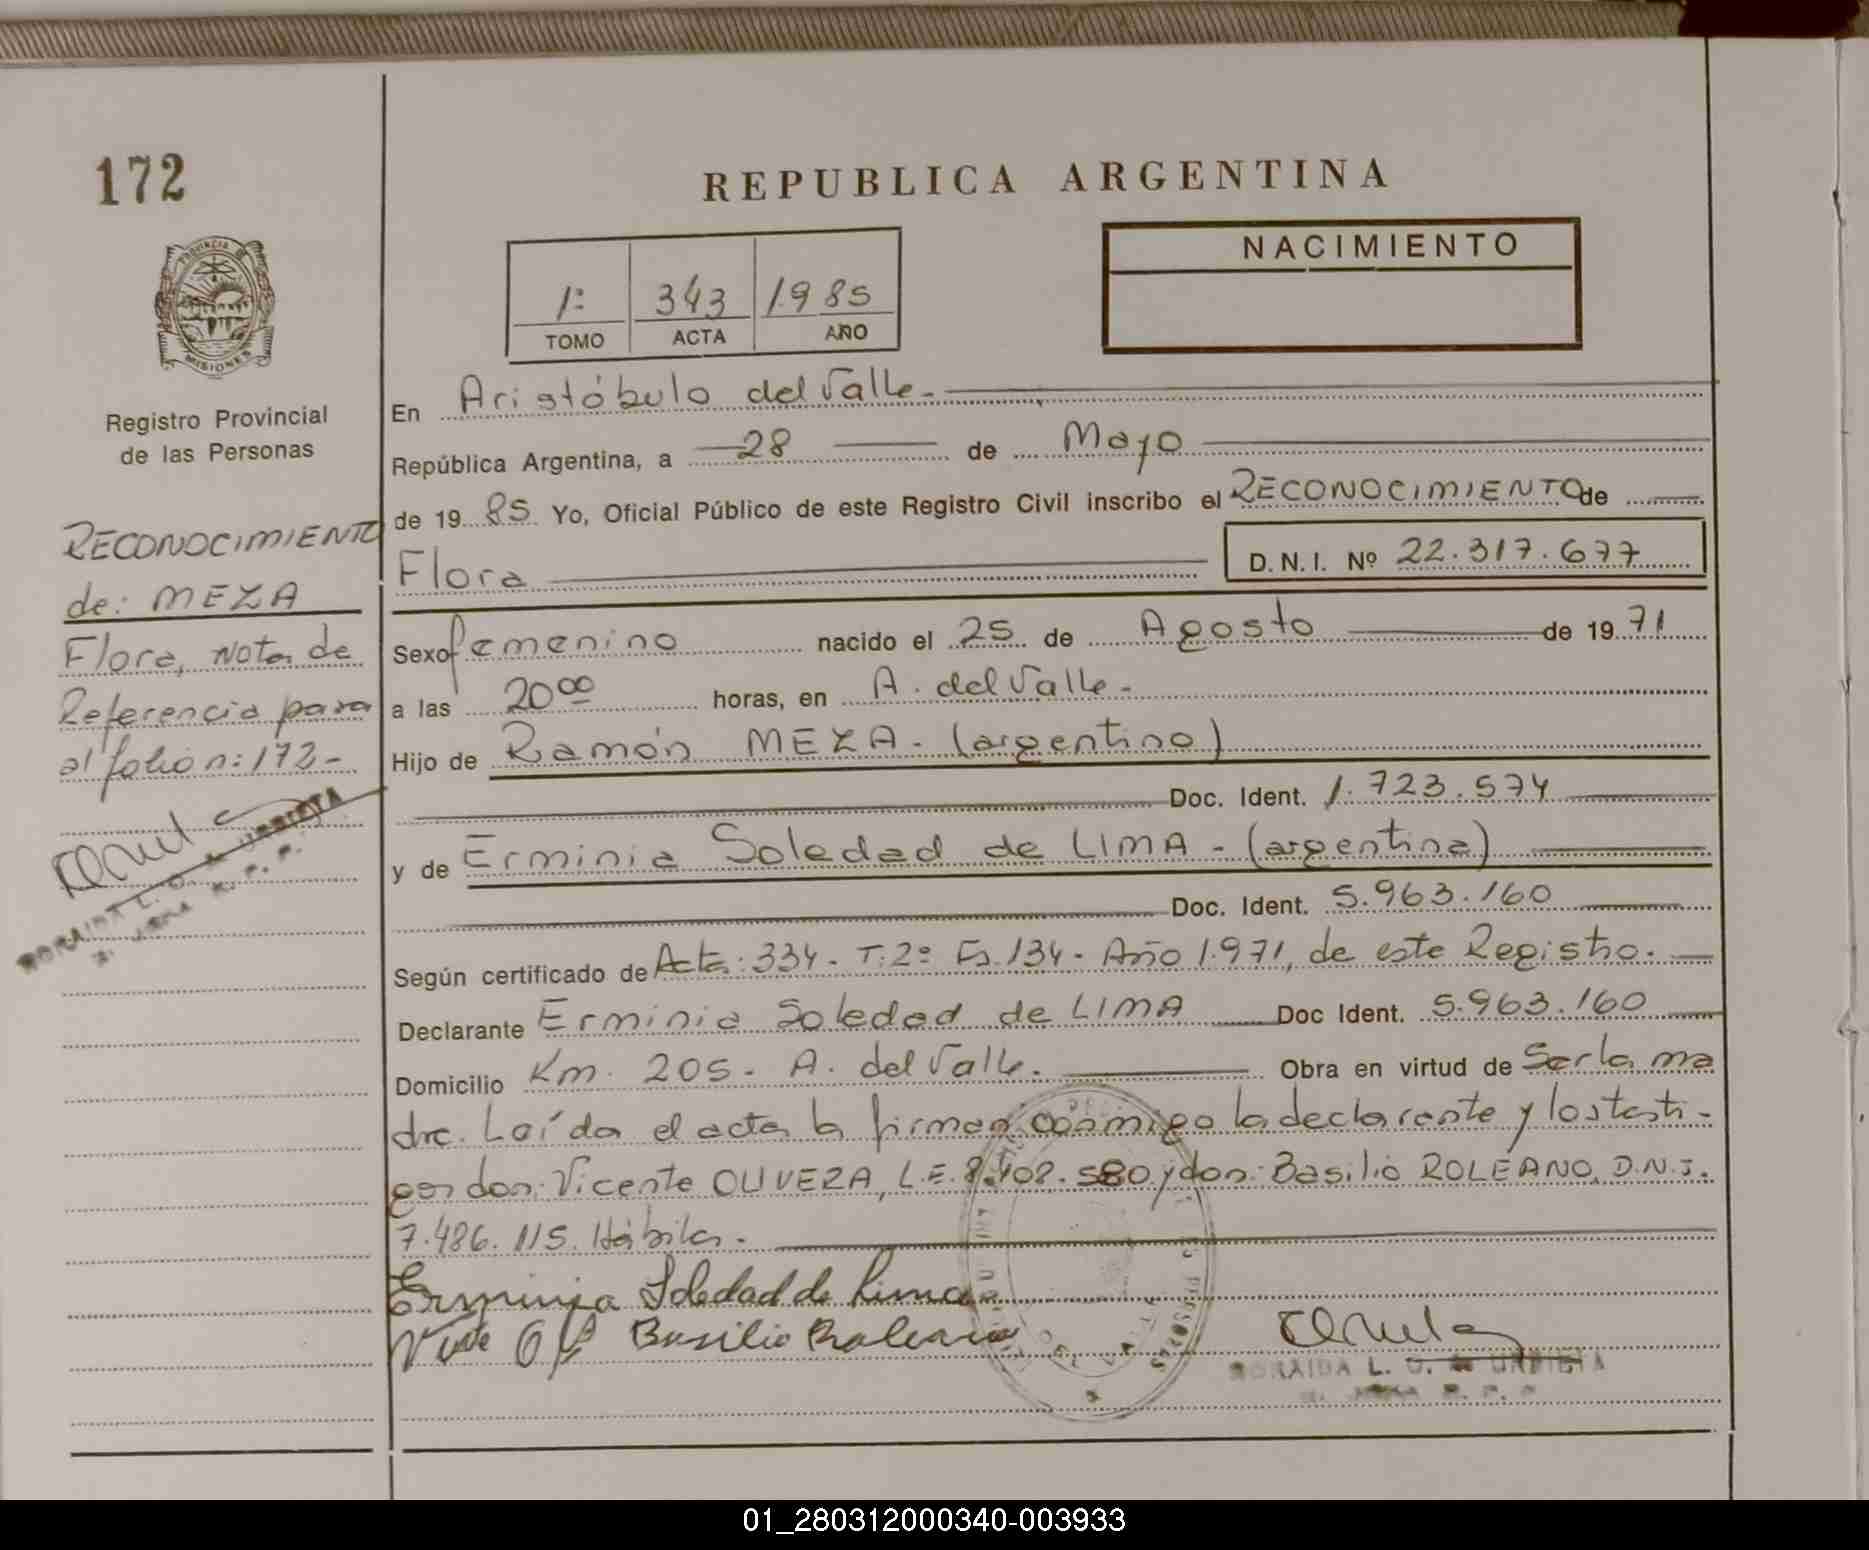 172
REPUBLICA ARGENTINA
PROVINCIA DE
MISIONES
Registro Provincial
de las Personas
NACIMIENTO
1º 343 1985
TOMO ACTA AÑO
En Aristóbulo del Valle.
República Argentina, a 28 de Mayo
de 1985 Yo, Oficial Público de este Registro Civil inscribo el RECONOCIMIENTO de
Flora D.N.I. Nº 22.317.677
Sexo femenino nacido el 25 de Agosto de 1971
a las 20 00 horas, en A. del Valle.
Hijo de Ramón MEZA. (argentino)
Doc. Ident. 1.723.574
y de Erminia Soledad de LIMA. (argentina)
Doc. Ident. 5.963.160
Según certificado de Acta: 334. T: 2º Fº. 134. Año 1.971, de este Registro.
Declarante Erminia Soledad de LIMA Doc Ident. 5.963.160
Domicilio Km. 205. A. del Valle. Obra en virtud de Ser la ma
dre. Leída el acta la firman conmigo la declarante y los testi-
gos don: Vicente OLIVERA, L.E. 8.408.580 y don: Basilio ROLEANO, D.N.I.
7.486.115. Hábiles.
Erminia Soledad de Lima
Basilio Roleano
RECONOCIMIENTO
de: MEZA
Flora, Nota de
Referencia para
al folio n: 172-
ZORAIDA L. O. de URBIETA
ZORAIDA L. O. de URBIETA
01_280312000340-003933